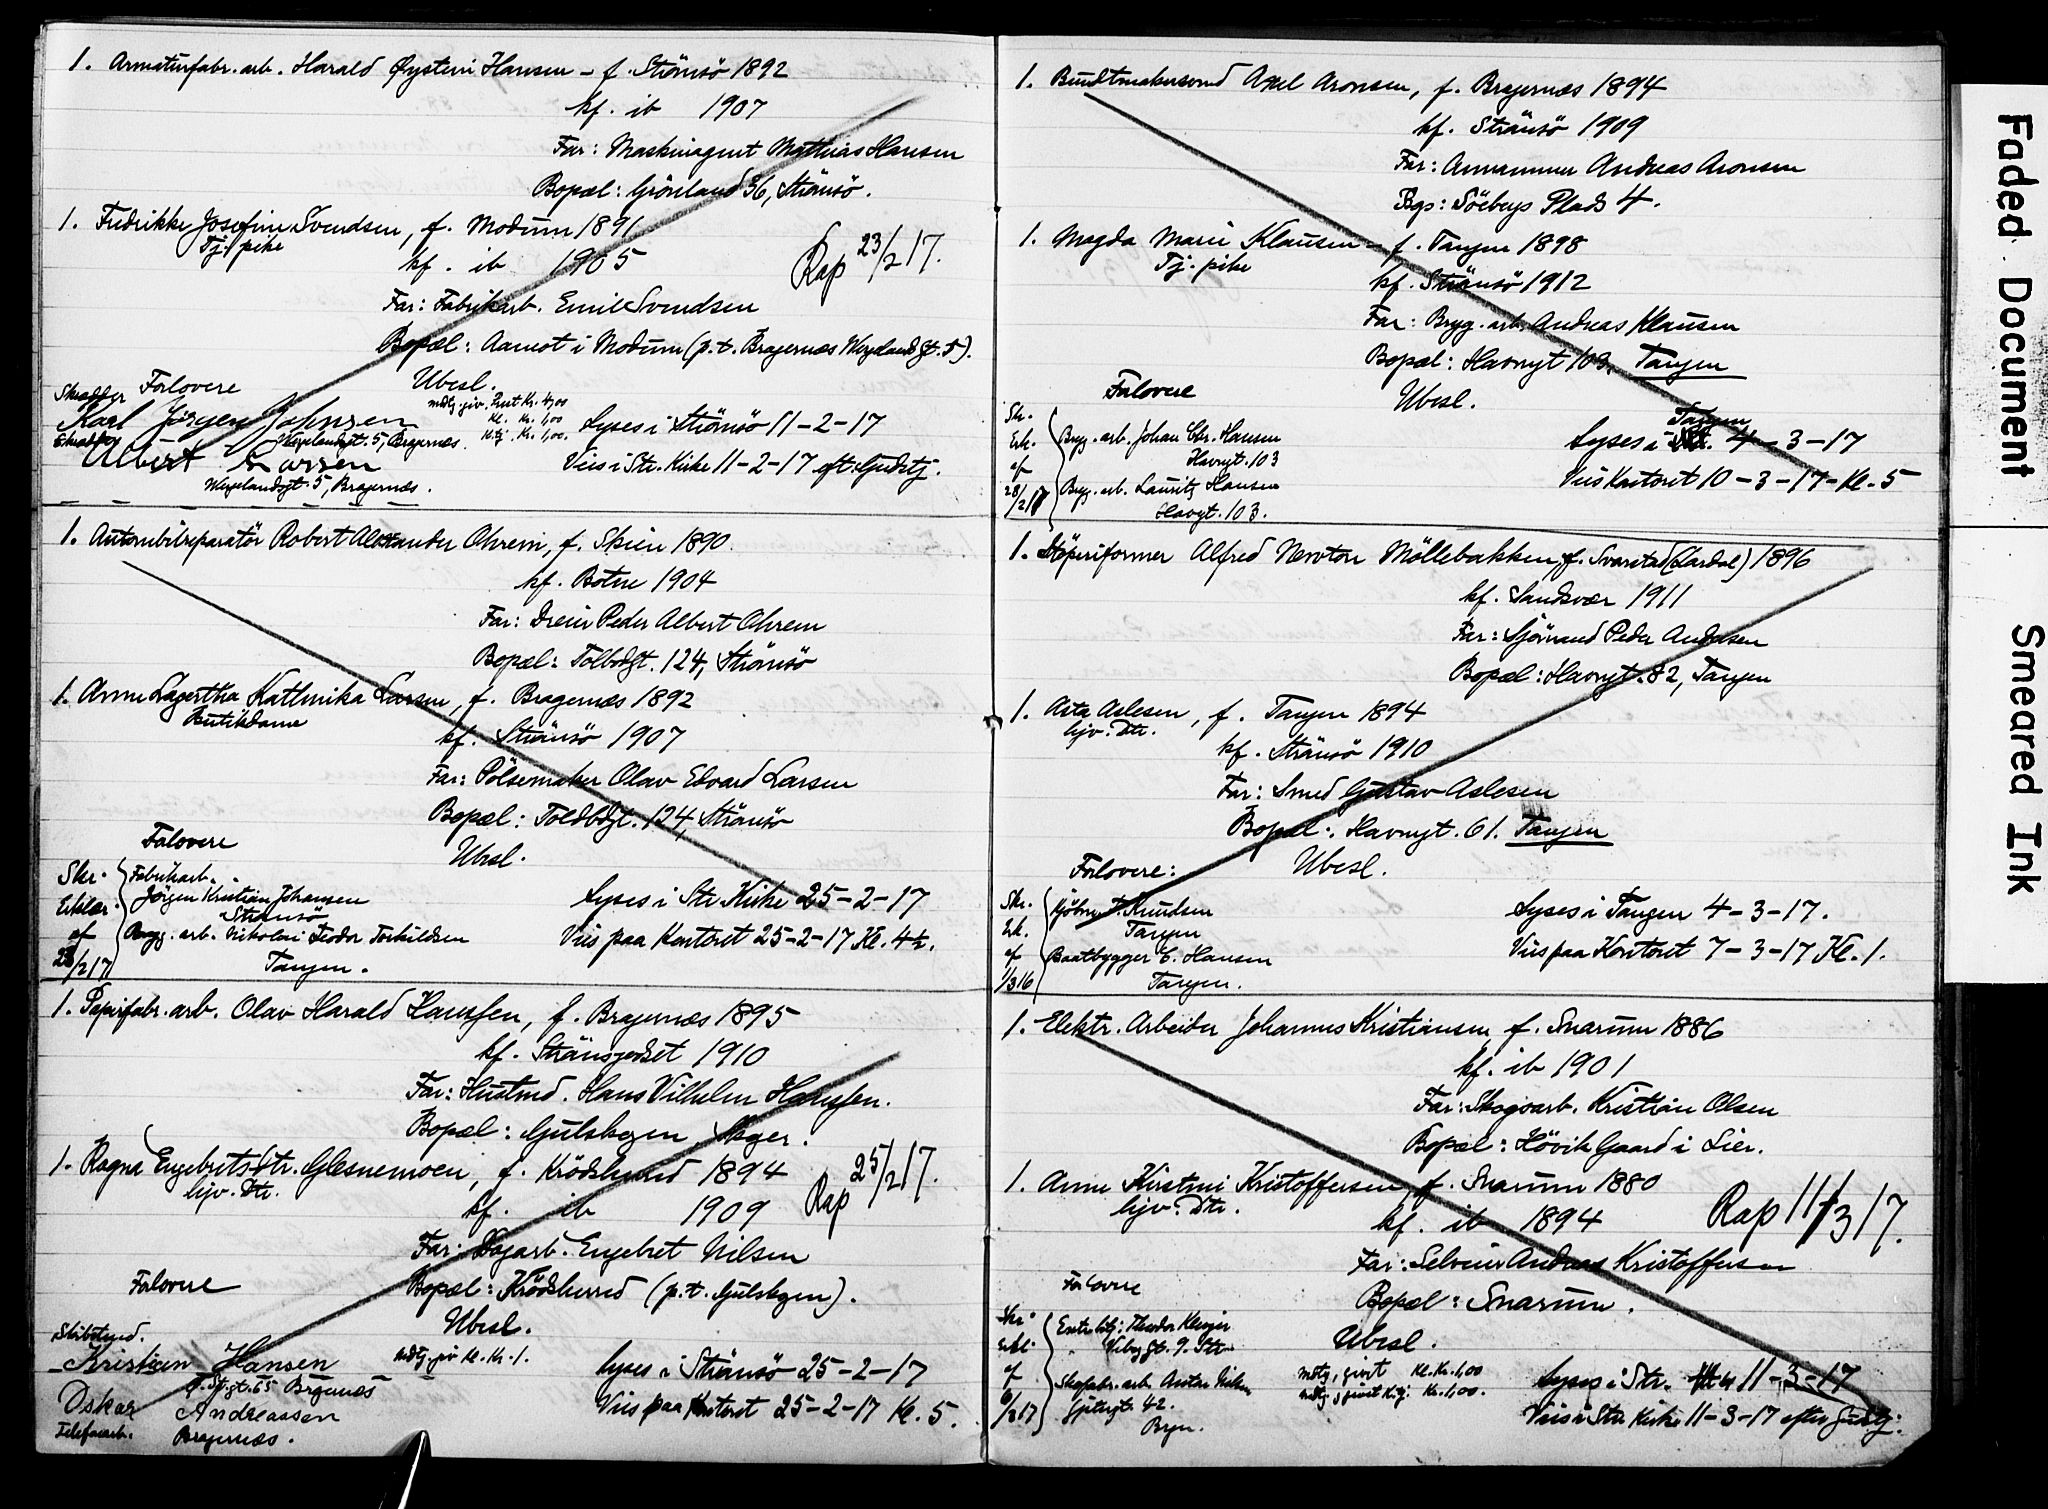 1. Armaturfabr. arb. Harald Øystein Hansen - f. Strömsö 1892
kf. ib 1907
Far: Maskinagent Mathias Hansen
Bopæl: Grönland 36, Strömsö.
1. Fredrikke Josefine Svendsen, f. Modum 1891
Tj. pike
kf. ib 1905
Rap 23/2 17.
Far: Fabrikarb. Emil Svendsen
Bopæl: Aamot i Modum (p.t. Bragernæs Wergelandsgt. 5).
Forlovere
Ubesl.
Skrædder
Karl Jörgen Johnsen
Wergelandsgt. 5, Bragernæs.
Kl. Kr. 1,00
Kr. 1,00.
Lyses i Strömsö 11-2-17
Albert Larsen
Wergelandsgt. 5, Bragernæs.
Vies i Str. Kirke 11-2-17 eft. Gudstj.
1. Automobilreparatör Robert Alexander Ohrem, f. Skien 1890
kf. Botne 1904
Far: Dreier Peder Albert Ohrem
Bopæl: Tolbodgt. 124, Strömsö
1. Anne Lagertha Kathinka Larsen, f. Bragernæs 1892
Butikdame
kf. Strömsö 1907
Far: Pölsemaker Olav Edvard Larsen
Bopæl: Toldbdgt. 124, Strömsö
Forlovere
Ubesl.
Skr. Erklær. af 23/2 17
Fabrikarb.
Jörgen Kristian Johansen
Strömsö
Bryg. arb. Nikolai Teodor Torkildsen
Tangen.
Lyses i Str. Kirke 25-2-17
Vies paa Kontoret 25-2-17 Kl. 4½.
1. Papirfabr. arb. Olav Harald Hanssen, f. Bragernæs 1895
kf. Strömsgodset 1910
Far: Hustmd. Hans Vilhelm Hanssen.
Bopæl: Gulskogen, Skoger.
1. Ragna Engebretsdtr. Glesnemoen, f. Krödsherred 1894
hjv. Dtr.
kf. ib 1909
Rap 25/2 17.
Far: Dagarb. Engebret Nilsen
Bopæl: Krödsherred (p.t. Gulskogen).
Forlovere
Ubesl.
Kristian Hansen
Bragernæs
Kl. Kr. 1.
Lyses i Strömsö 25-2-17
Oskar Andreassen
Telefonarb. Bragernæs.
Vies paa Kontoret 25-2-17 Kl. 5.
1. Buntmakersvend Axel Aronsen, f. Bragernæs 1894
kf. Strömsö 1909
Far: Andreas Aronsen
Bgs: Söebergs Plads 4.
1. Magda Marie Klausen - f. Tangen 1898
Tj. pike
kf. Strömsö 1912
Far: Bryg. arb. Andreas Klausen
Bopæl: Havnegt 103, Tangen
Forlovere
Ubesl.
Skr. Erk. af 28/2 17
Bryg. arb. Johan Chr. Hansen
Havngt. 103
Bryg. arb. Lauritz Hansen
Havgt. 103.
Tangen
Lyses i Str. 4-3-17
Vies Kontoret 10-3-17 - Kl. 5
1. Støperiformer Alfred Newton Möllebakken, f. Svarstad (Lardal) 1896
kf. Sandsvær 1911
Far: Sjömand Peder Andersen
Bopæl: Havngt. 82, Tangen
1. Asta Aslesen, f. Tangen 1894
hjv. Dtr.
kf. Strömsö 1910
Far: Smed Gustav Aslesen
Bopæl: Havngt. 61. Tangen
Forlovere:
Ubesl.
Skr. Erk. af 1/3 16
Kjöbm. T. Knudsen
Tangen
Baatbygger E. Hansen
Tangen.
Lyses i Tangen 4-3-17.
Vies paa Kontoret 7-3-17 Kl. 1.
1. Elektr. Arbeider Johannes Kristiansen, f. Snarum 1886
kf. ib 1901
Far: Skogsarb. Kristian Olsen
Bopæl: Hövik Gaard i Lier.
1. Anne Kirstine Kristoffersen, f. Snarum 1880
hjv. Dtr.
kf. ib 1894
Rap 11/3 17.
Far: Selveier Andreas Kristoffersen
Bopæl: Snarum.
Forlovere
Ubesl.
Skr. Erkl. af
Theodor
Str.
Kl. Kr. 1,00
Kr. 1,00.
Bryn.
Lyses i Str. 11-3-17
Vies i Str. Kirke 11-3-17 efter Gudstj.
Faded Document
Smeared Ink